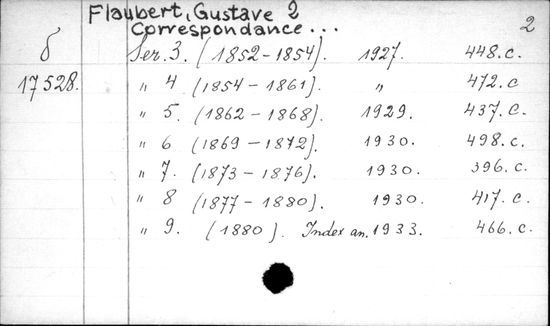 Flaubert, Gustave 2
Correspondance ... 2
б Ser. 3. (1852-1854). 1927. 448.c.
17528. " 4 (1854-1861). " 472.c
" 5. (1862-1868). 1929. 437.c.
" 6 (1869-1872). 1930. 498.c.
" 7. (1873-1876). 1930. 396.c.
" 8 (1877-1880). 1930. 417.c.
" 9. (1880). Index an. 1933. 466.c.